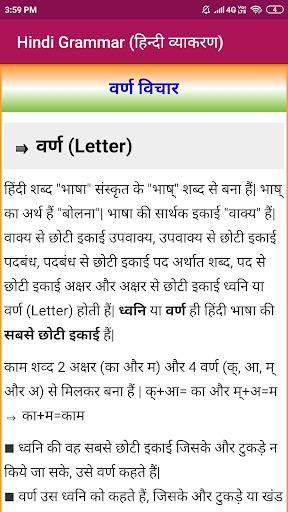 3:59 PM
4G
4
Hindi Grammar (हिन्दी व्याकरण)
वर्ण विचार
⇛ वर्ण (Letter)
हिंदी शब्द "भाषा" संस्कृत के "भाष्" शब्द से बना हैं| भाष्
का अर्थ हैं "बोलना"| भाषा की सार्थक इकाई "वाक्य" हैं|
वाक्य से छोटी इकाई उपवाक्य, उपवाक्य से छोटी इकाई
पदबंध, पदबंध से छोटी इकाई पद अर्थात शब्द, पद से
छोटी इकाई अक्षर और अक्षर से छोटी इकाई ध्वनि या
वर्ण (Letter) होती हैं| ध्वनि या वर्ण ही हिंदी भाषा की
सबसे छोटी इकाई हैं|
काम शव्द 2 अक्षर (का और म) और 4 वर्ण (क्, आ, म्
और अ) से मिलकर बना हैं | क्+आ= का और म्+अ=म
→ का+म=काम
■ ध्वनि की वह सबसे छोटी इकाई जिसके और टुकड़े न
किये जा सके, उसे वर्ण कहते हैं|
■ वर्ण उस ध्वनि को कहते हैं, जिसके और टुकड़े या खंड